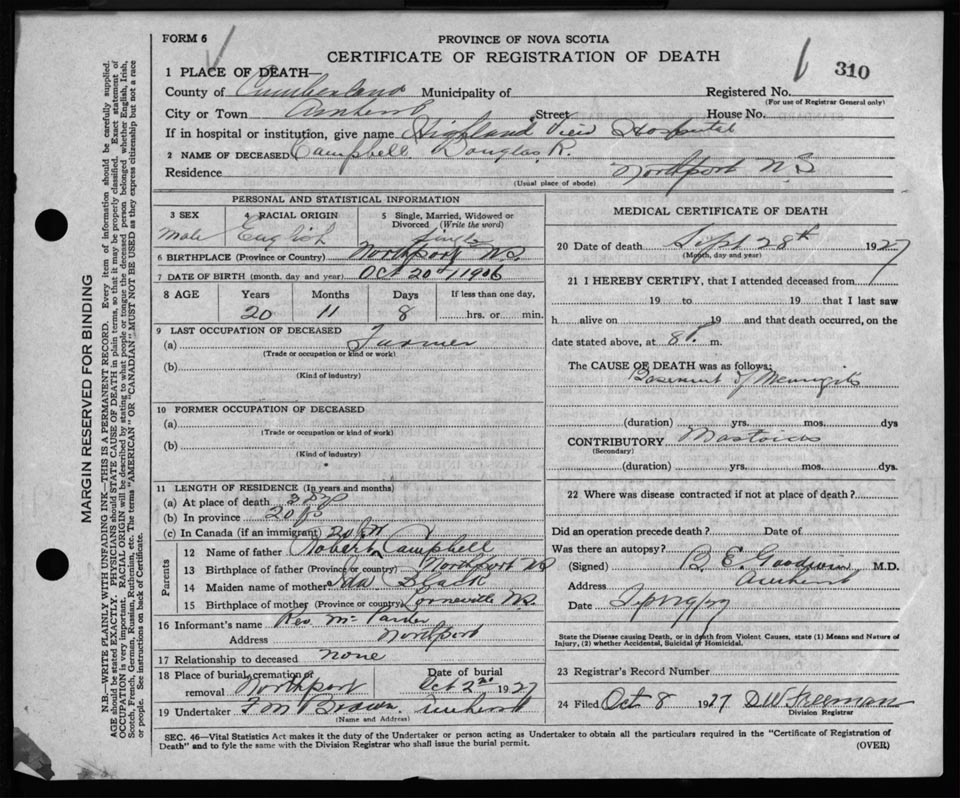 FORM 6
PROVINCE OF NOVA SCOTIA
CERTIFICATE OF REGISTRATION OF DEATH
310
1 PLACE OF DEATH—
County of Cumberland Municipality of Registered No.
(For use of Registrar General only)
City or Town Amherst Street House No.
If in hospital or institution, give name Highland View Hospital
2 NAME OF DECEASED Campbell Douglas R.
Residence Northport N.S
(Usual place of abode)
PERSONAL AND STATISTICAL INFORMATION
3 SEX
Male
4 RACIAL ORIGIN
English
5 Single, Married, Widowed or Divorced (Write the word)
Single
6 BIRTHPLACE (Province or Country) Northport N.S.
7 DATE OF BIRTH (month, day and year) Oct 20th 1906
8 AGE Years Months Days If less than one day,
20 11 8 hrs. or min.
9 LAST OCCUPATION OF DECEASED
(a) Farmer
(Trade or occupation or kind of work)
(b)
(Kind of industry)
10 FORMER OCCUPATION OF DECEASED
(a)
(Trade or occupation or kind of work)
(b)
(Kind of industry)
11 LENGTH OF RESIDENCE (In years and months)
(a) At place of death
(b) In province 20
(c) In Canada (if an immigrant) 20
Parents
12 Name of father Robert Campbell
13 Birthplace of father (Province or country) Northport NS
14 Maiden name of mother Ida Black
15 Birthplace of mother (Province or country) Lorneville N.S.
16 Informant's name Rev. Mc
Address Northport
17 Relationship to deceased none
18 Place of burial, cremation or removal Northport
Date of burial Oct 2nd 1927
19 Undertaker F M Brown Amherst
(Name and Address)
MEDICAL CERTIFICATE OF DEATH
20 Date of death Sept 28th 1927
(Month, day and year)
21 I HEREBY CERTIFY, that I attended deceased from
19 to 19 that I last saw
h alive on 19 and that death occurred, on the
date stated above, at 8 P. m.
The CAUSE OF DEATH was as follows:
Meningitis
(duration) yrs. mos. dys
CONTRIBUTORY
(Secondary)
(duration) yrs. mos. dys.
22 Where was disease contracted if not at place of death?
Did an operation precede death? Date of
Was there an autopsy?
(Signed) M.D.
Address Amherst
Date
State the Disease causing Death, or in death from Violent Causes, state (1) Means and Nature of
Injury, (2) whether Accidental, Suicidal or Homicidal.
23 Registrar's Record Number
24 Filed Oct 8 1927 D W Freeman
Division Registrar
SEC. 46—Vital Statistics Act makes it the duty of the Undertaker or person acting as Undertaker to obtain all the particulars required in the "Certificate of Registration of
Death" and to fyle the same with the Division Registrar who shall issue the burial permit.
(OVER)
MARGIN RESERVED FOR BINDING
N.B.—WRITE PLAINLY WITH UNFADING INK—THIS IS A PERMANENT RECORD. Every item of information should be carefully supplied.
AGE should be stated EXACTLY. PHYSICIANS should STATE CAUSE OF DEATH in plain terms, so that it may be properly classified. Exact statement of
OCCUPATION is very important. RACIAL ORIGIN will be described by stating to what people or tongue the deceased person belonged whether English, Irish,
Scotch, French, German, Russian, Ruthenian, etc. The terms "AMERICAN" OR "CANADIAN" MUST NOT BE USED as they express citizenship but not a race
or people. See instructions on back of Certificate.